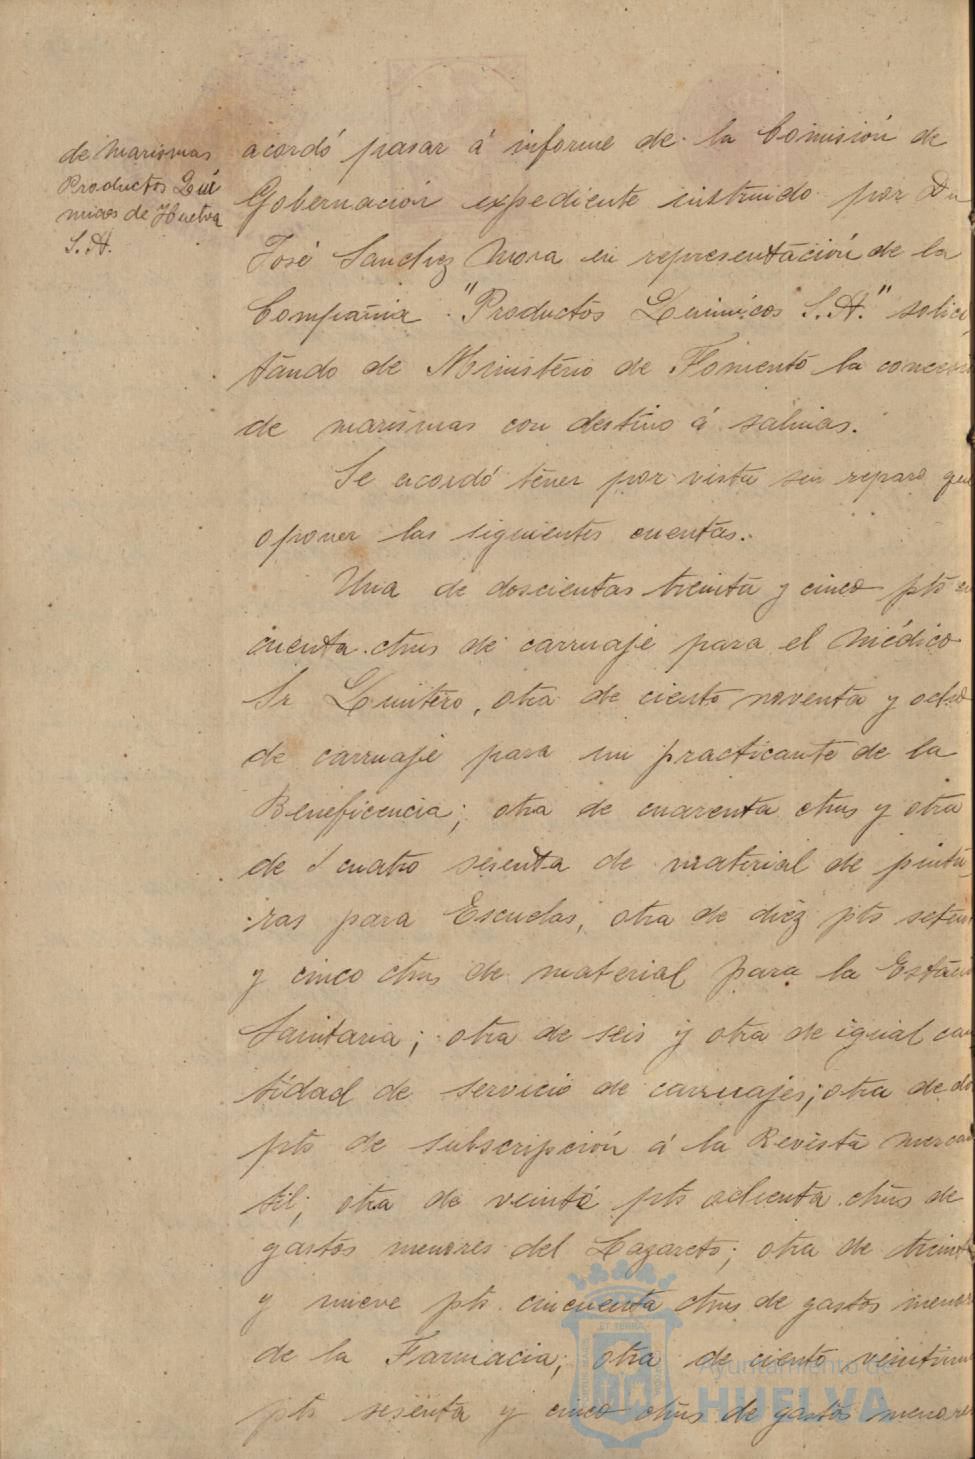 de Marismas
Productos Quí
micos de Huelva
S.A.
acordó pasar á informe de la Comisión de
Gobernación expediente instruido por Dn
José Sanchez Mora en representación de la
Compañia "Productos Quimicos S.A." solici
tando de Ministerio de Fomento la concesi
de marismas con destino á salinas.
Se acordó tener por vista sin reparo que
oponer las siguientes cuentas.
Una de doscientas treinta y cinco pts
cuenta ctms de carruaje para el Médico
Sr Quintero, otra de ciento noventa y ocho
de carruaje para un practicante de la
Beneficencia; otra de cuarenta ctms y otra
de cuatro sesenta de material de pintu
ras para Escuelas, otra de diez pts seten
y cinco ctms de material para la Estaci
Sanitaria; otra de seis y otra de igual can
tidad de servicio de carruajes; otra de do
pts de subscripción á la Revista mercan
til; otra de veinte pts ochenta ctms de
gastos menores del Lazareto; otra de treinta
y nueve pts. cincuenta ctms de gastos menor
de la Farmacia; otra de ciento veintiun
pts sesenta y cinco ctms de gastos menores
Ayuntamiento de
HUELVA